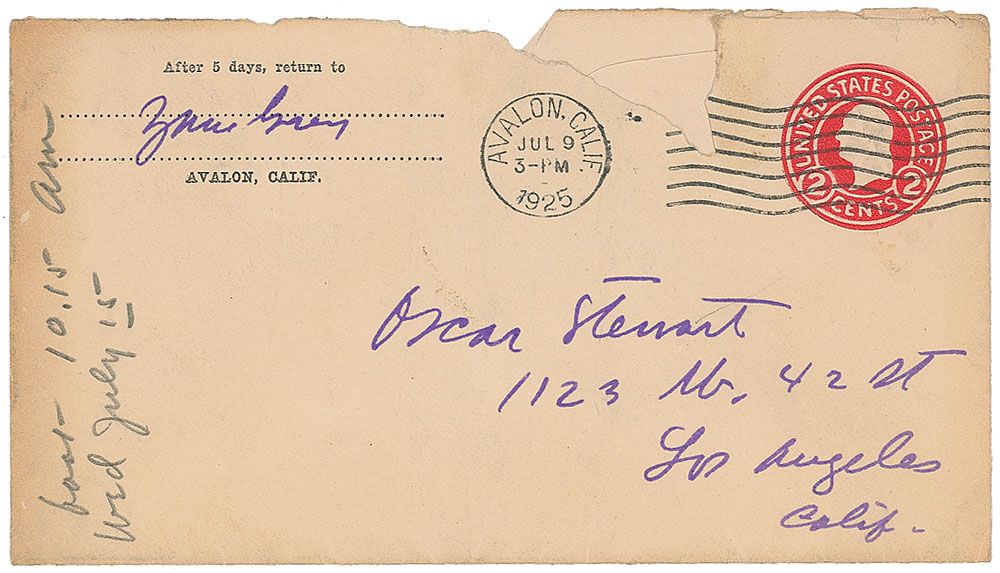 After 5 days, return to
Zane Grey
AVALON, CALIF.
AVALON, CALIF.
JUL 9
3-PM
1925
UNITED STATES POSTAGE
2 CENTS 2
Oscar Stewart
1123 W. 42 St
Los Angeles
Calif.
boat - 10.15 am
Wed July 15